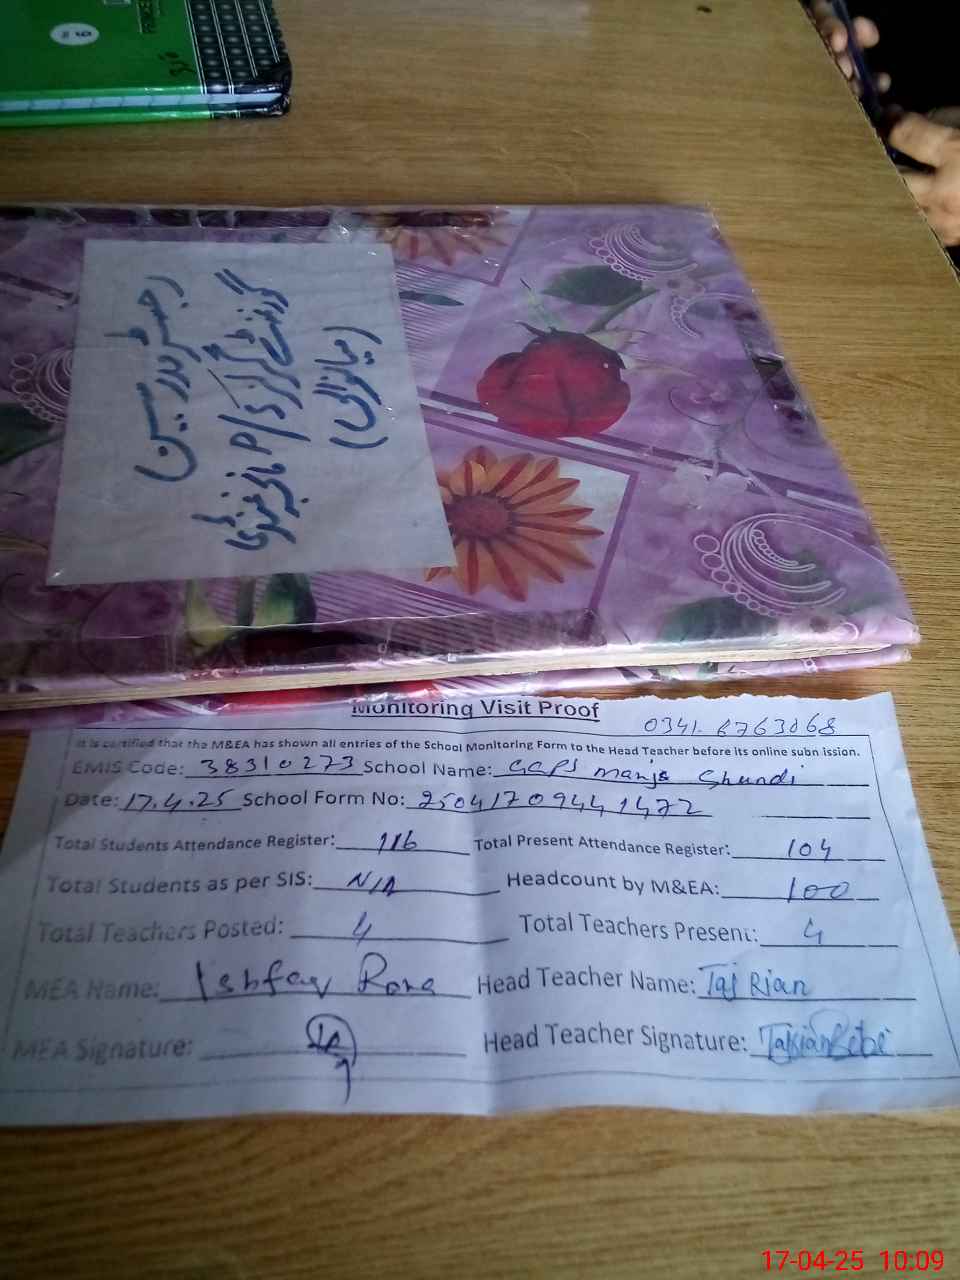 رجسٹر مدرسین
(میانوالی)
Monitoring Visit Proof
0341-6763068
It is certified that the M&EA has shown all entries of the School Monitoring Form to the Head Teacher before its online submission.
EMIS Code: 38310273 School Name: GGPS manja Ghundi
Date: 17.4.25 School Form No: 250417094441472
Total Students Attendance Register: 116 Total Present Attendance Register: 104
Total Students as per SIS: N/A Headcount by M&EA: 100
Total Teachers Posted: 4 Total Teachers Present: 4
MEA Name: Ishfaq Rana Head Teacher Name: Taj Rian
MEA Signature: Head Teacher Signature:
17-04-25 10:09